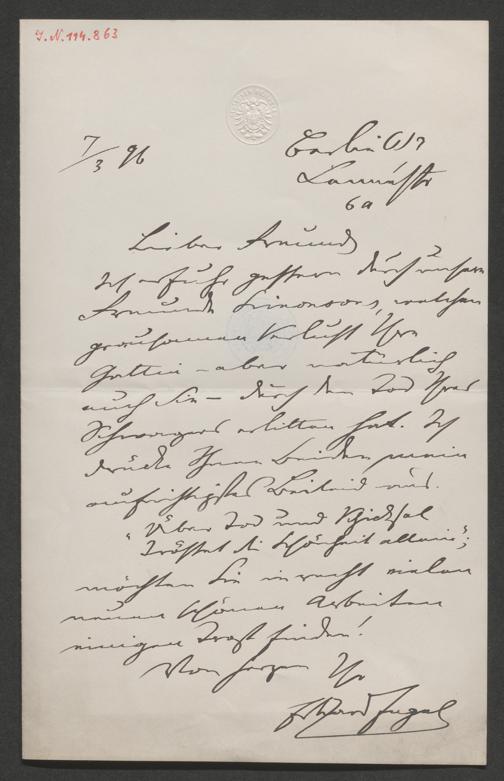 I.N. 114.863
7/3 96
Berlin W9
Lennéstr
6a
Lieber Freund
Ich erfuhr gestern durch unsern
Freunde, welchen
grausamen Verlust Ihre
Gattin – aber natürlich
auch Sie – durch den Tod Ihres
Schwagers erlitten hat. Ich
drücke Ihnen beiden mein
aufrichtigstes Beileid aus.
"Über Tod und Schicksal
Tröstet die Schönheit alleine";
möchten Sie in recht vielen
neuen schönen Arbeiten
einigen Trost finden!
Von Herzen Ihr